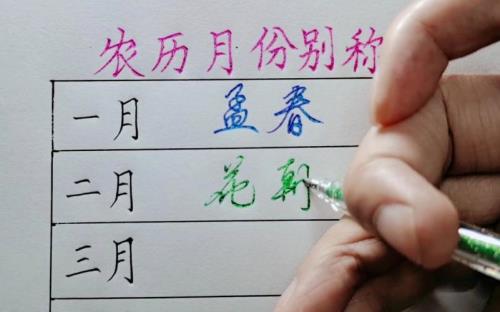 农历月份别称
一月 孟春
二月 花朝
三月